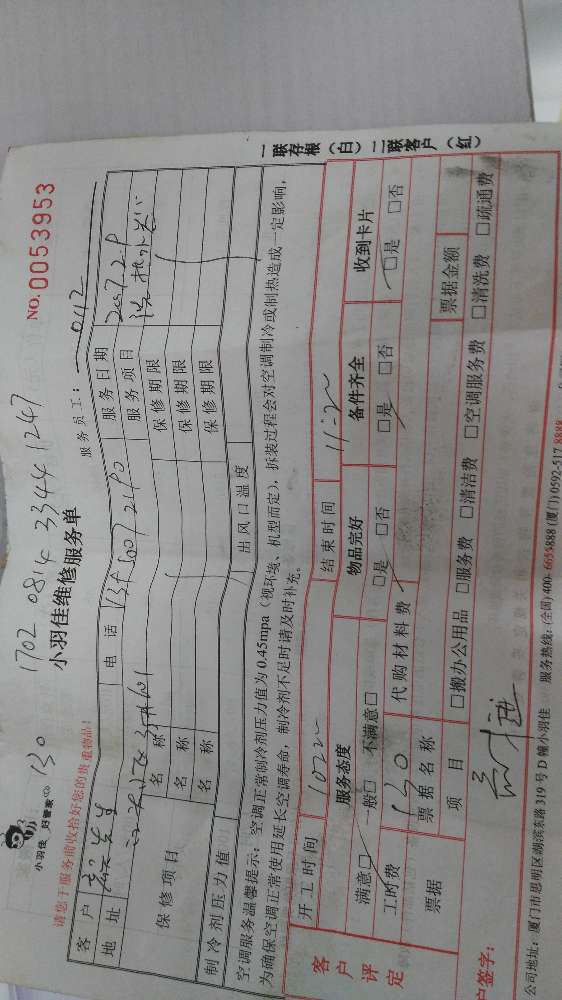 1702 0814 3344 1247
小羽佳 好管家
130
小羽佳维修服务单
NO. 0053953
请您于服务前收拾好您的贵重物品!
服务员工: 0112
客户 先生 电话 服务日期
地址 服务项目 洗热水器
保修项目 名称 保修期限
名称 保修期限
名称 保修期限
制冷剂压力值 出风口温度
空调服务温馨提示:空调正常制冷剂压力值为0.45mpa(视环境、机型而定),拆装过程会对空调制冷或制热造成一定影响,
为确保空调正常使用延长空调寿命,制冷剂不足时请及时补充。
一联存根(白)二联客户(红)
客户评定
开工时间 结束时间
服务态度 物品完好 备件齐全 收到卡片
满意□ 一般□ 不满意□ □是 □否 □是 □否 □是 □否
工时费 130 代购材料费
票据 票据名称 票据金额
项目 □搬办公用品 □服务费 □清洁费 □空调服务费 □清洗费 □疏通费
户签字:
公司地址:厦门市思明区湖滨东路319号D幢小羽佳 服务热线:(全国)400-6655888 (厦门)0592-517 8888